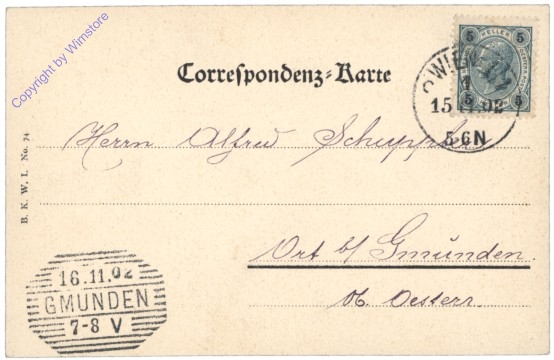 Copyright by Wimstore
5 HELLER 5
5 5
WIEN
15 11 02
5-6N
Correspondenz-Karte
B. K. W. I. No. 74
Herrn Alfred
Ort b/ Gmunden.
Ob. Oesterr.
16.11.02
GMUNDEN
7-8 V